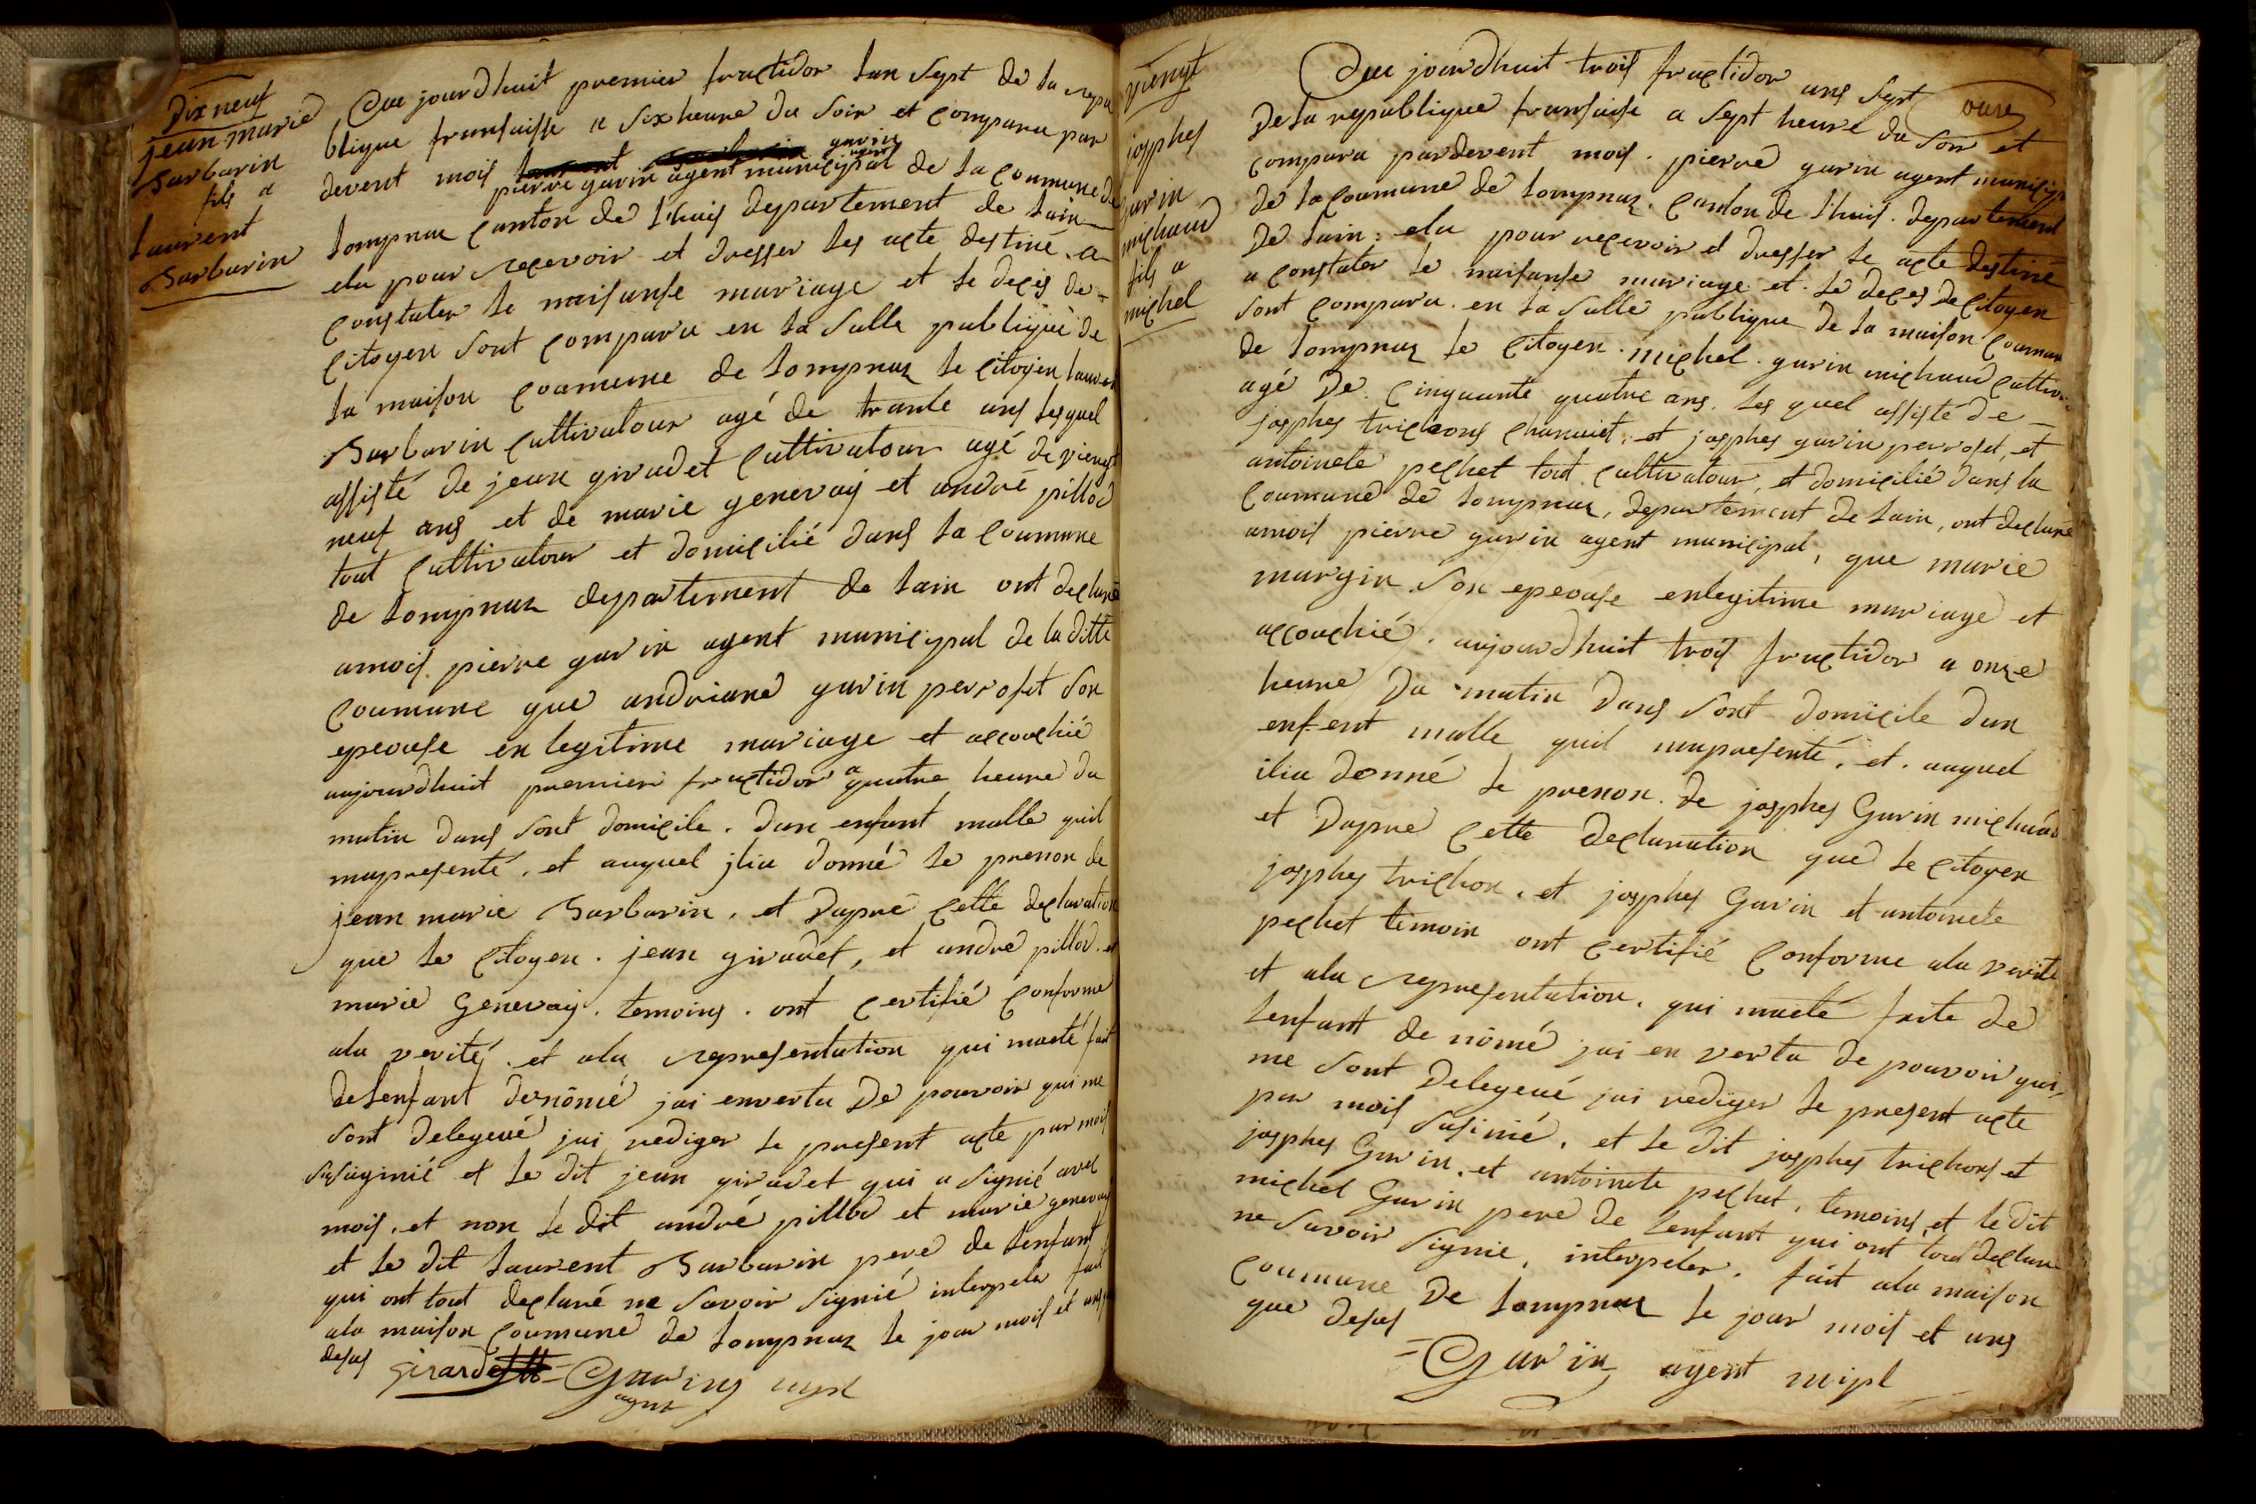 Dix neuf
jean marie
Barbarin
fils a
laurent
Barbarin
Du jourdhuit premier fructidor lan sept de la repu
blique fransaisse a six heure du soir et compara par
devent mois pierre gavin agent municipal de la coumune de
lompnaz canton de lhuis departement de lain
elu pour recevoir et dresser les acte destiné a
constater le naisanse mariage et le deces de
citoyen sont compara en la salle publique de
la maison coumune de lompnaz le citoyen lauren
Barbarin cultivatour agé de trante ans lesquel
assisté de jean giradet cultivatour agé de vienst
neuf ans et de marie genevay et andré pillod
tout cultivatour et domicilié dans la coumune
de lompnaz departement de lain ont declaré
amois pierre gavin agent municipal de la ditte
coumune que andriane gavin perroset son
epeouse en legitime mariage et accouchié
aujourdhuit premier fructidor a quatre heure du
matin dans sont domicile . dun enfant malle quil
mapresenté . et auquel jlia donné le prenon de
jean marie Barbarin . et Dapré cette declaration
que le citoyen . jean giradet , et andré pillod . et
marie Genevay . temoins . ont certifié conforme
ala verité . et ala representation qui maeté fait
delenfant denômé jai envertu De pouvoir qui me
sont delegeué jai rediger le present acte par mois
susaginié et le dit jean giradet qui a signié avec
mois . et non le dit andré pillod et marie genevay
et le dit laurent Barbarin pere de lenfant
qui ont tout declaré ne savoir signié interpeler fait
ala maison coumune de lompnaz le jour mois et ans
desus
Girardet = Gavin
agent
vienst
josphes
gavin
michaud
fils a
michel
Du jourdhuit trois fructidor ans sept
onze
De la republique fransaise a sept heure du soir et
compara pardevent mois . pierre gavin agent municip
de la coumune de lompnaz . canton de lhuis . departement
De lain . elu pour recevoir et dresser le acte destine
a constater le naisanse mariage et le deces de citoyen
sont compara . en la salle publique de la maison coumun
de lompnaz le citoyen . michel . gavin michaud cultiv
agé De . cinquante quatre ans . les quel assisté de
josphes trichons chanuiet . et josphes gavin perroset , et
antoinete pechet tout cultivatour , et domicilié dans la
coumune de lompnaz , departement de lain , ont declaré
amois pierre gavin agent municipal , que marie
margin son epeouse enlegitime mariage et
accouchié . aujourdhuit trois fructidor a onze
heure Du matin Dans sont domicile dun
enfent malle quil mapresenté , et . auquel
ilia donné le prenon . de josphes Gavin michaud
et Dapré cette declaration que le citoyen
josphes trichon . et josphes Gavin et antoinete
pechet témoin ont certifié conforme ala verité
et ala representation . qui maeté faite de
lenfant de nômé jai en vertu de pouvoir qui
me sont Delegeué jai rediger le present acte
par mois susinié . et le dit josphes trichons et
josphes Gavin . et antoinete pechet . temoins et le dit
michel Gavin pere de lenfant qui ont tout declaré
ne savoir signie , interpeler . fait ala maison
coumune De lompnaz le jour mois et ans
que desus
= Gavin agent mipl